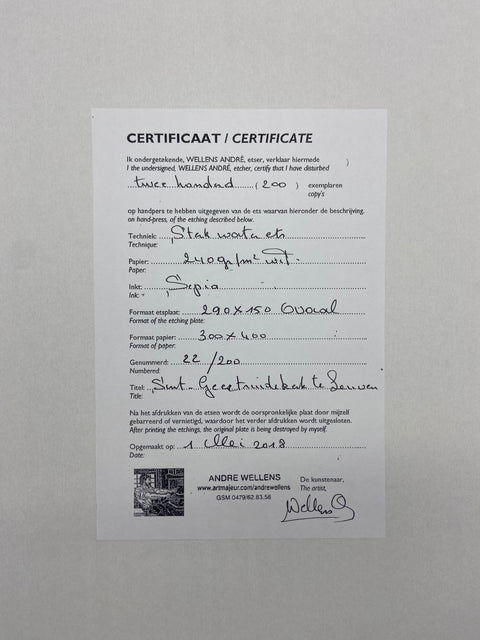 CERTIFICAAT / CERTIFICATE
Ik ondergetekende, WELLENS ANDRÉ, etser, verklaar hiermede )
I the undersigned, WELLENS ANDRÉ, etcher, certify that I have disturbed
twee honderd (200) exemplaren
copy's
op handpers te hebben uitgegeven van de ets waarvan hieronder de beschrijving.
on hand-press, of the etching described below.
Techniek: Sterkwater ets
Technique:
Papier: 240gr/m² wit.
Paper:
Inkt: Sepia
Ink:
Formaat etsplaat: 290 x 150 Ovaal
Format of the etching plate:
Formaat papier: 300 x 400
Format of paper:
Genummerd: 22/200
Numbered:
Titel: Sint-Geertruidekerk te Leuven
Title:
Na het afdrukken van de etsen wordt de oorspronkelijke plaat door mijzelf
gebarreerd of vernietigd, waardoor het verder afdrukken wordt uitgesloten.
After printing the etchings, the original plate is being destroyed by myself.
Opgemaakt op: 1 Mei 2018
Date:
ANDRE WELLENS
www.artmajeur.com/andrewellens
GSM 0479/62.83.56
De kunstenaar,
The artist,
Wellens